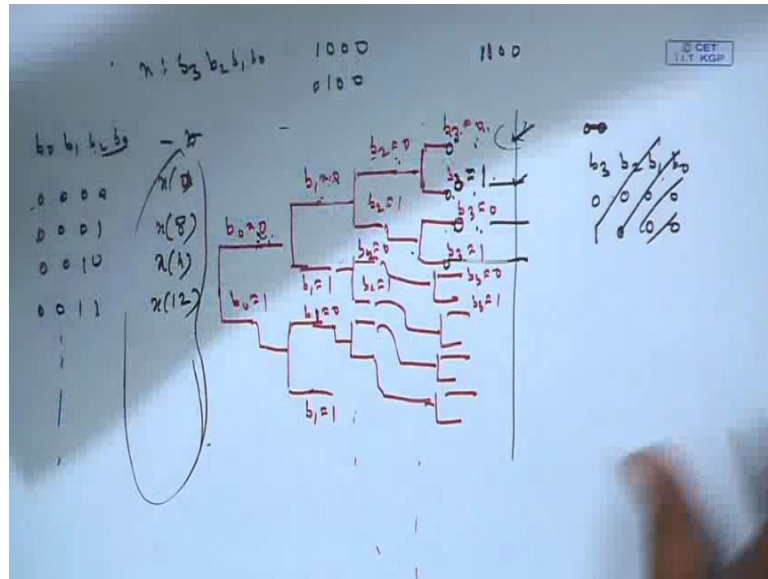 x : b3 b2 b1 b0 1000 1100
0100
© CET
I.I.T. KGP
b0 b1 b2 b3
0 0 0 0 x(0)
0 0 0 1 x(8)
0 0 1 0 x(4)
0 0 1 1 x(12)
b0=0
b0=1
b1=0
b1=1
b1=0
b1=1
b2=0
b2=1
b2=0
b2=1
b3=0
b3=1
b3=0
b3=1
b3=0
b3=1
b3 b2 b1 b0
0 0 0 0